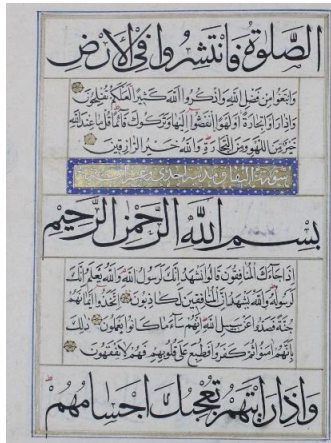 الصَّلٰوةُ فَانْتَشِرُوا فِي الْاَرْضِ
وَابْتَغُوا مِنْ فَضْلِ اللَّهِ وَاذْكُرُوا اللَّهَ كَثِيرًا لَعَلَّكُمْ تُفْلِحُونَ
وَاِذَا رَاَوْا تِجَارَةً اَوْ لَهْوًا انْفَضُّوا اِلَيْهَا وَتَرَكُوكَ قَائِمًا قُلْ مَا عِنْدَ اللَّهِ
خَيْرٌ مِنَ اللَّهْوِ وَمِنَ التِّجَارَةِ وَاللَّهُ خَيْرُ الرَّازِقِينَ
سورة المنافقون احدى عشر
بِسْمِ اللَّهِ الرَّحْمٰنِ الرَّحِيمِ
اِذَا جَاءَكَ الْمُنَافِقُونَ قَالُوا نَشْهَدُ اِنَّكَ لَرَسُولُ اللَّهِ وَاللَّهُ يَعْلَمُ اِنَّكَ
لَرَسُولُهُ وَاللَّهُ يَشْهَدُ اِنَّ الْمُنَافِقِينَ لَكَاذِبُونَ اتَّخَذُوا اَيْمَانَهُمْ
جُنَّةً فَصَدُّوا عَنْ سَبِيلِ اللَّهِ اِنَّهُمْ سَاءَ مَا كَانُوا يَعْمَلُونَ ذٰلِكَ
بِاَنَّهُمْ اٰمَنُوا ثُمَّ كَفَرُوا فَطُبِعَ عَلٰى قُلُوبِهِمْ فَهُمْ لَا يَفْقَهُونَ
وَاِذَا رَاَيْتَهُمْ تُعْجِبُكَ اَجْسَامُهُمْ